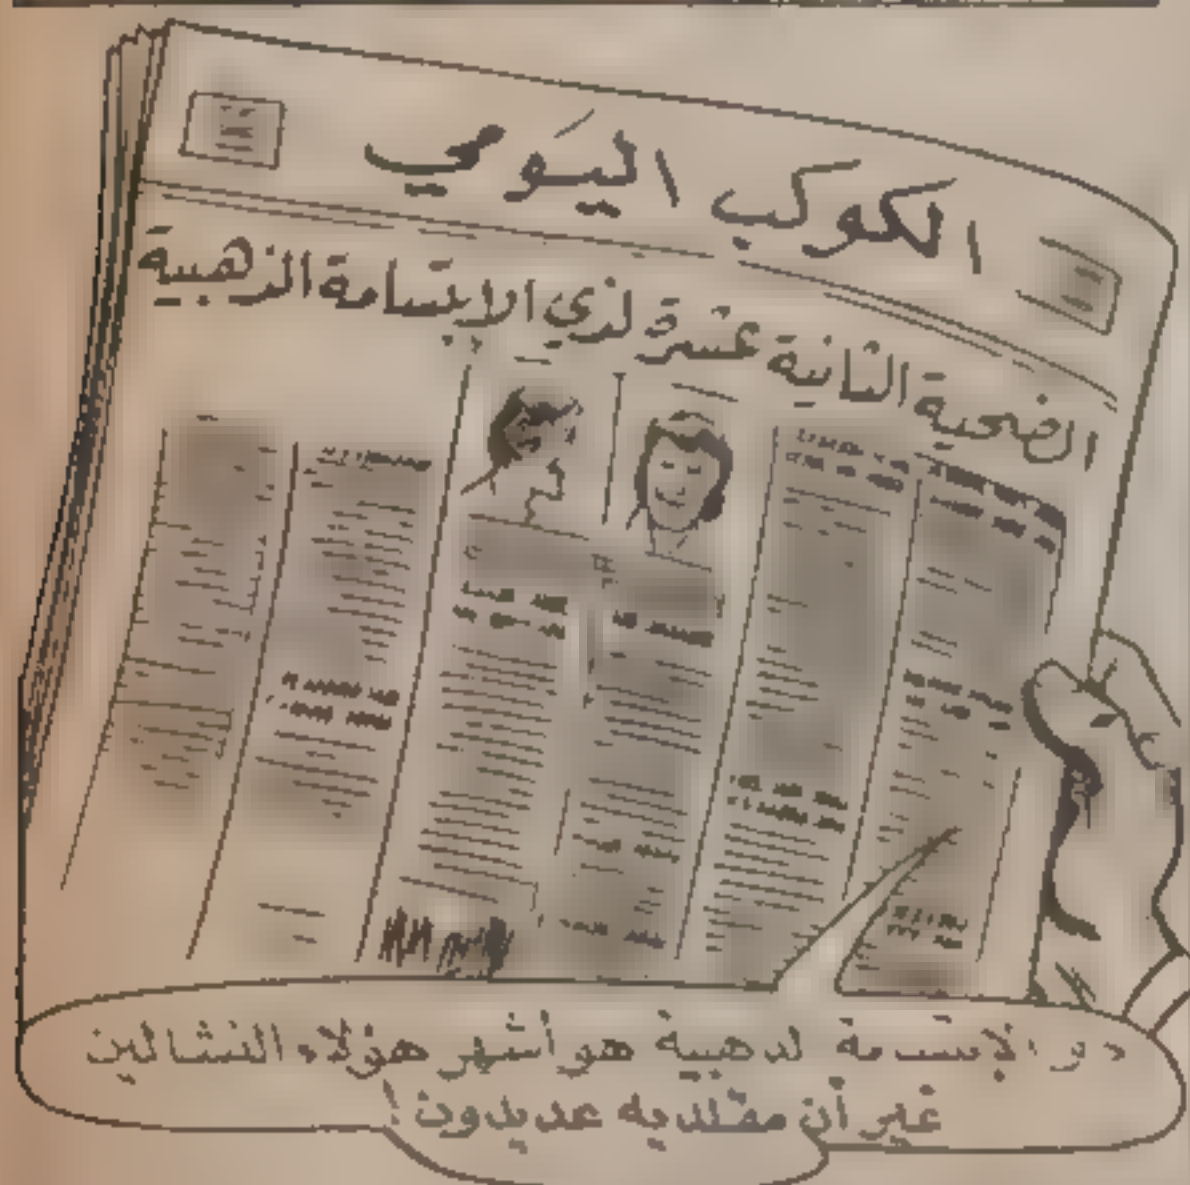 الكوكب اليومي
الضحية الثانية عشرة لذي الإبتسامة الذهبية
ذو الإبتسامة الذهبية هو أشهر هؤلاء النشالين
غير أن مقلديه عديدون!